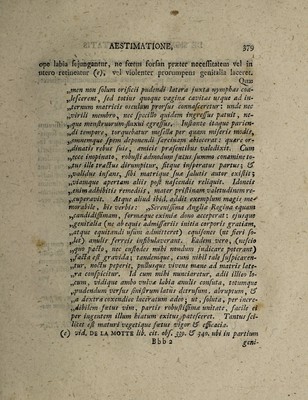 AESTIMATIONE. 379
ope labia sejungantur, ne fœtus forsan præter necessitatem vel in
utero retineatur (e), vel violenter prorumpens genitalia laceret.
Quæ
„men non solum orificii pudendi latera juxta nymphas coa-
„lescerent, sed totius quoque vagina cavitas usque ad in-
„ternum matricis osculum prorsus connasceretur: unde nec
„virili membro, nec specillo quidem ingressus patuit, ne-
„que menstruorum fluxui egressus. Instante itaque parien-
„di tempore, torquebatur misella per quam miseris modis,
„omnemque spem deponendi fœtum abjecerat; quare or-
„dinatis rebus suis, amicis præsentibus valedixit. Cum
„ecce inopinato, robusti admodum fœtus summo conamine to-
„tus illo tractus dirumpitur, fitque insperatus partus; &
„validus infans, sibi matrique suæ salutis autor existit;
„viamque apertam aliis post nascendis reliquit. Idoneis
„enim adhibitis remediis, mater pristinam valetudinem re-
„cuperavit. Atque aliud ibid. addit exemplum magis me-
„morabile, his verbis: „Serenissima Anglia Regina equam
„candidissimam, formæque eximia dono acceperat: ejusque
„genitalia (ne ab equo admissariis inita corporis gratiam,
„atque equitandi usum admitteret) equisones (ut fieri so-
„let) anulis ferreis infibulaverant. Eadem vero, (nescio
„quo pacto, nec custodes mihi modum indicare poterant)
„facta est gravida; tandemque, cum nihil tale suspicaren-
„tur, noctu peperit, pullusque vivens mane ad matris late-
„ra conspicitur. Id cum mihi nunciaretur, adii illico lo-
„cum, vidique ambo vulvæ labia anulis consuta, totumque
„pudendum versus sinistrum latus detrusum, abruptum, &
„a dextra coxendice laceratum adeo; ut, soluta, per incre-
„dibilem fœtus vim, partis robustissima unitate, facile ei
„per ingentem illum hiatum exitus patesceret. Tantus sci-
„licet est maturi vegetique fœtus vigor & efficacia.
(e) vid. DE LA MOTTE lib. cit. obs. 339. & 340. ubi in partium
Bbb 2 geni-